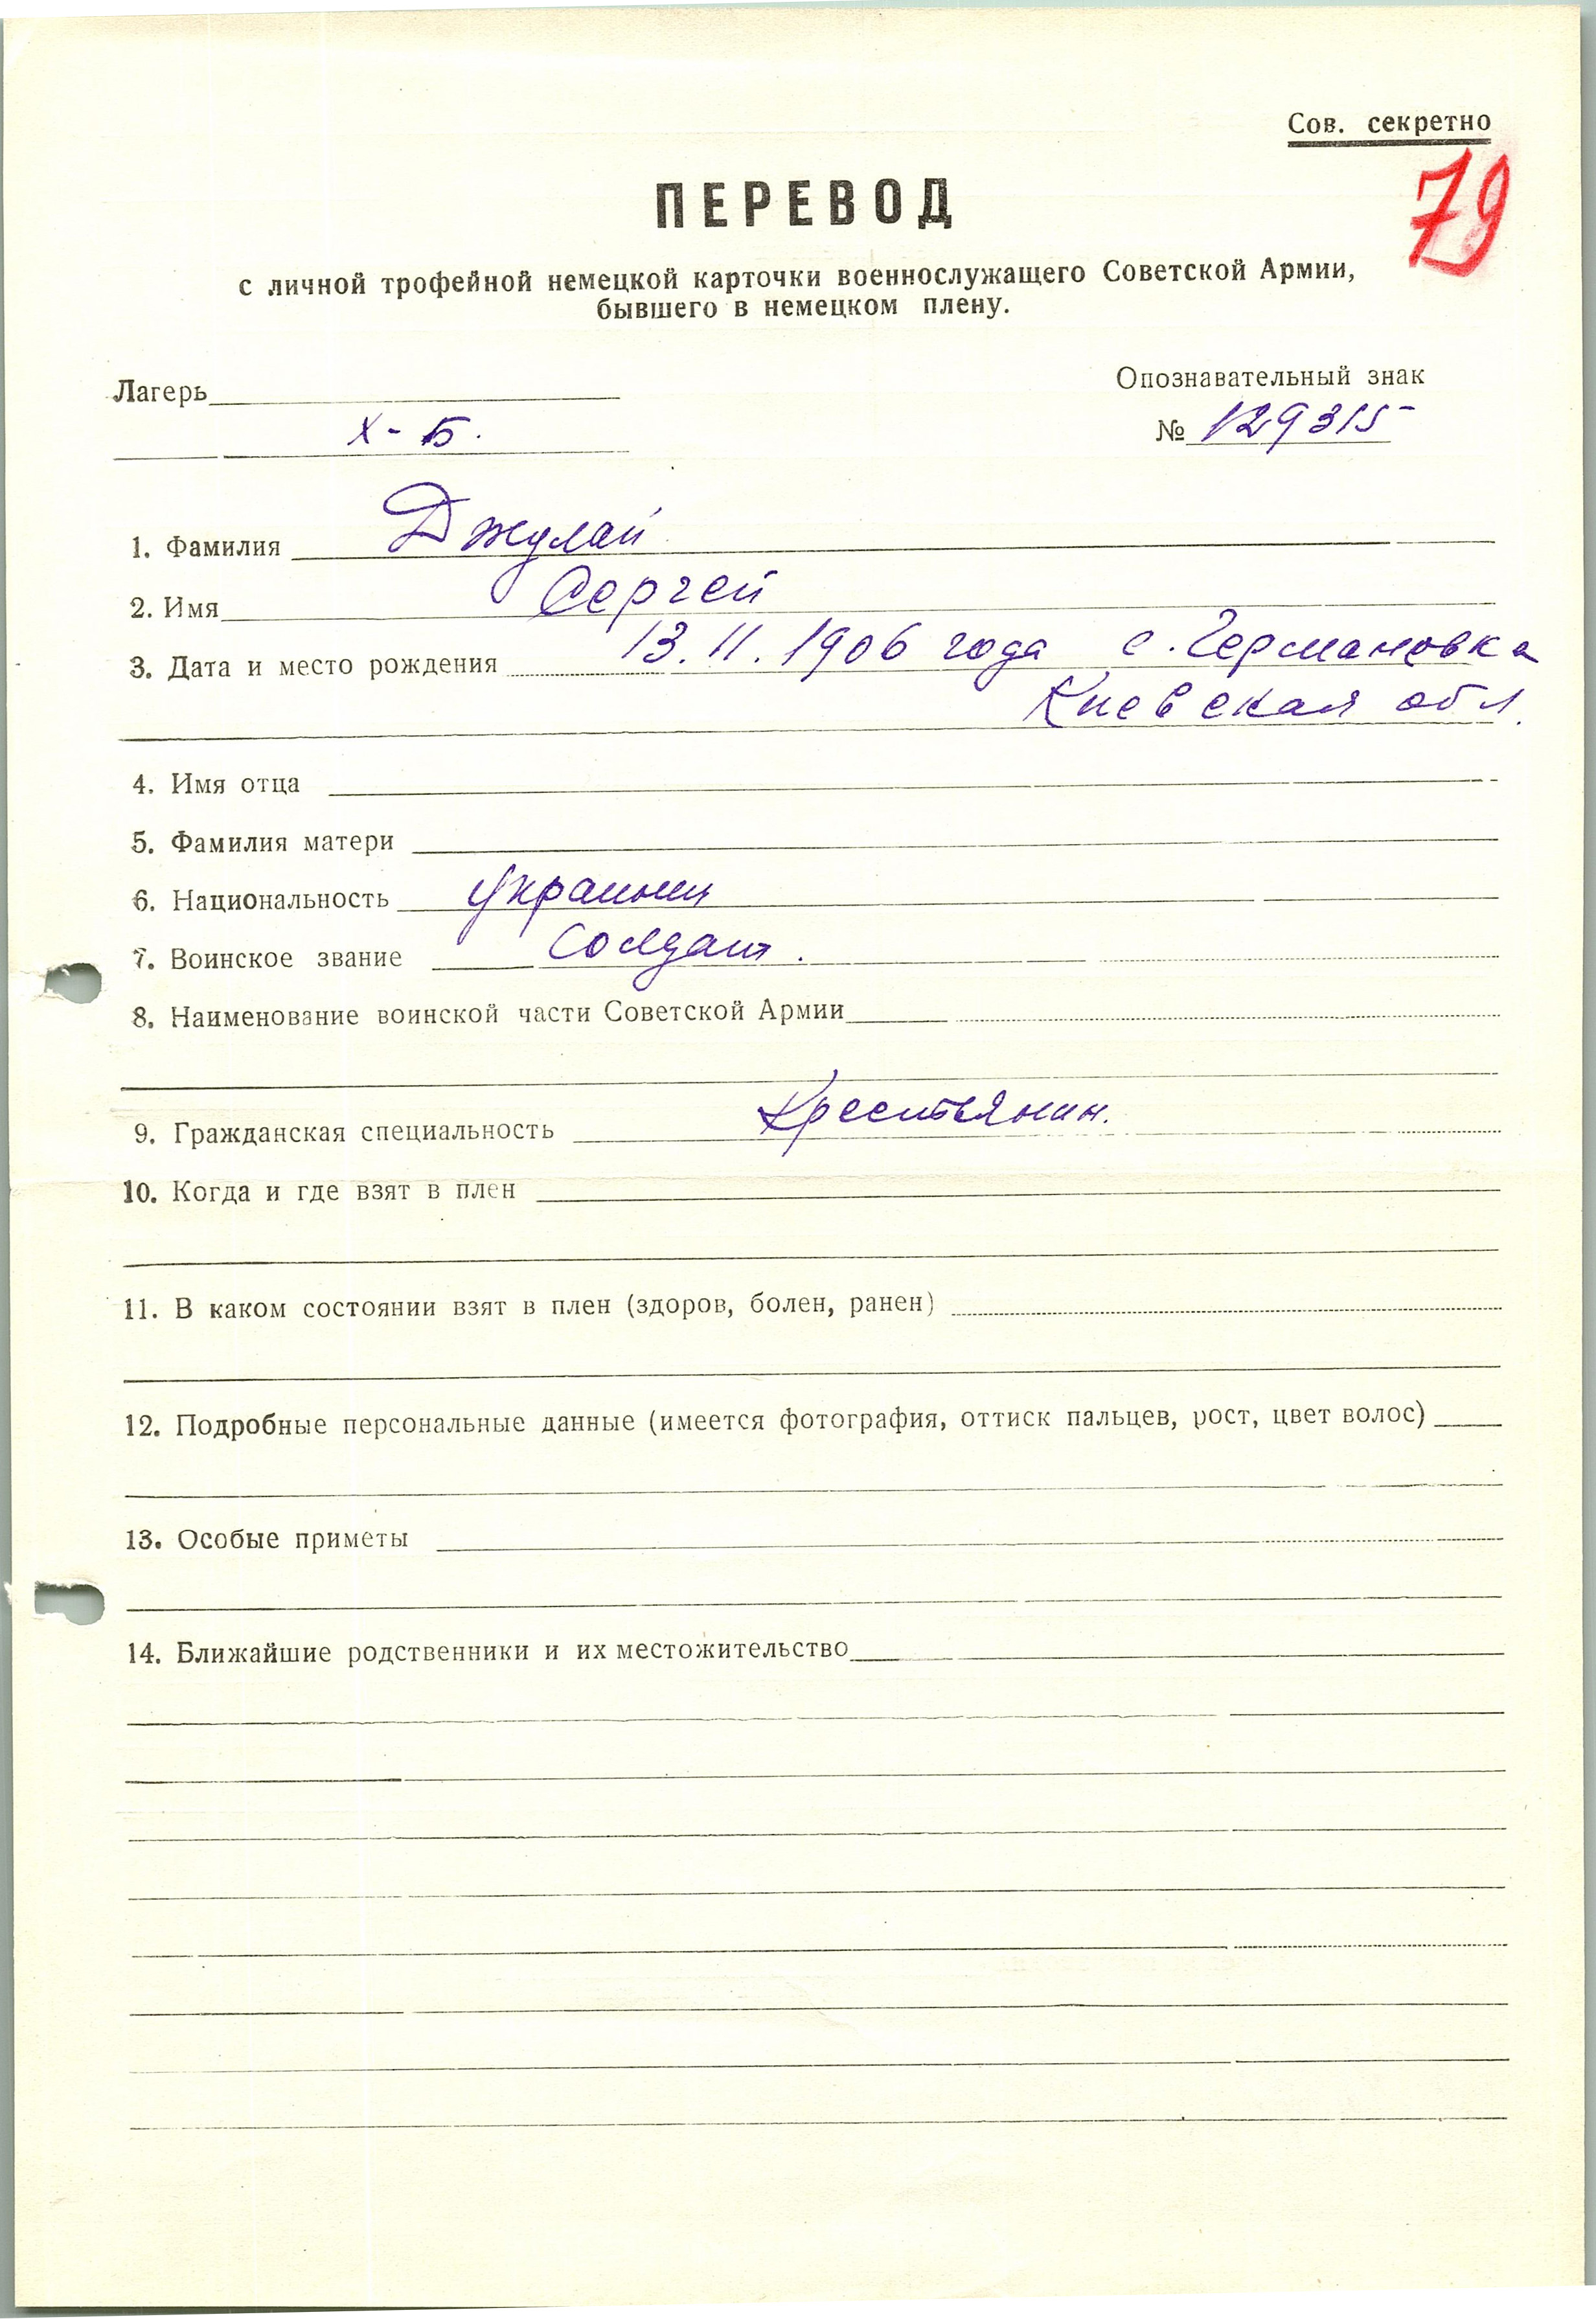 Сов. секретно
79
ПЕРЕВОД
с личной трофейной немецкой карточки военнослужащего Советской Армии,
бывшего в немецком плену.
Лагерь
Х-Б.
Опознавательный знак
№ 129315
1. Фамилия Джулай
2. Имя Сергей
3. Дата и место рождения 13.11.1906 года с. Германовка
Киевская обл.
4. Имя отца
5. Фамилия матери
6. Национальность украинец
7. Воинское звание солдат.
8. Наименование воинской части Советской Армии
9. Гражданская специальность Крестьянин.
10. Когда и где взят в плен
11. В каком состоянии взят в плен (здоров, болен, ранен)
12. Подробные персональные данные (имеется фотография, оттиск пальцев, рост, цвет волос)
13. Особые приметы
14. Ближайшие родственники и их местожительство